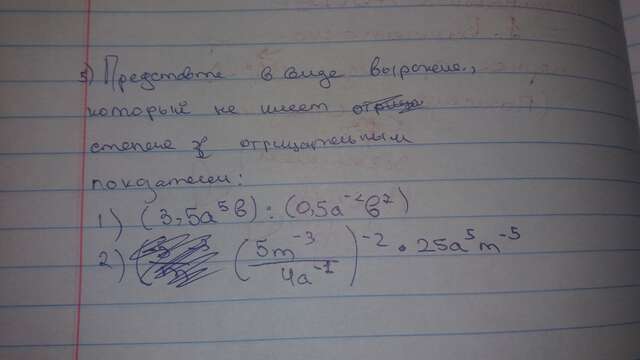 3) Представте в виде выражение,
который не имеет
степене с отрицательным
показателем:
1) (3,5a⁵b) : (0,5a⁻²b²)
2) (5m⁻³/4a⁻¹)⁻² · 25a⁵m⁻⁵